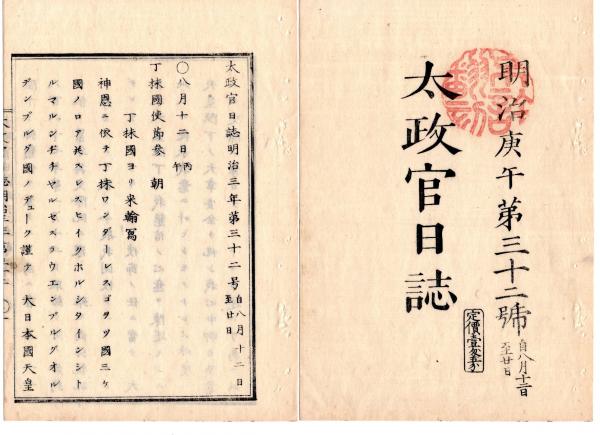 明治庚午第三十二號 自八月十二日
至廿日
太政官日誌
定價壹匁五分
太政官日誌明治三年第三十二号 自八月十二日
至廿日
○八月十二日 丙午
丁抹國使節參 朝
丁抹國ヨリ来翰寫
神恩ニ依テ丁抹ワンダーレスゴヲツ國三ケ
國ノロア共スレスヒイクホルシタインシト
ルマルンドヂヤルゼスラウエンブルグオル
デンブルグ國ノデューク謹テ 大日本國天皇